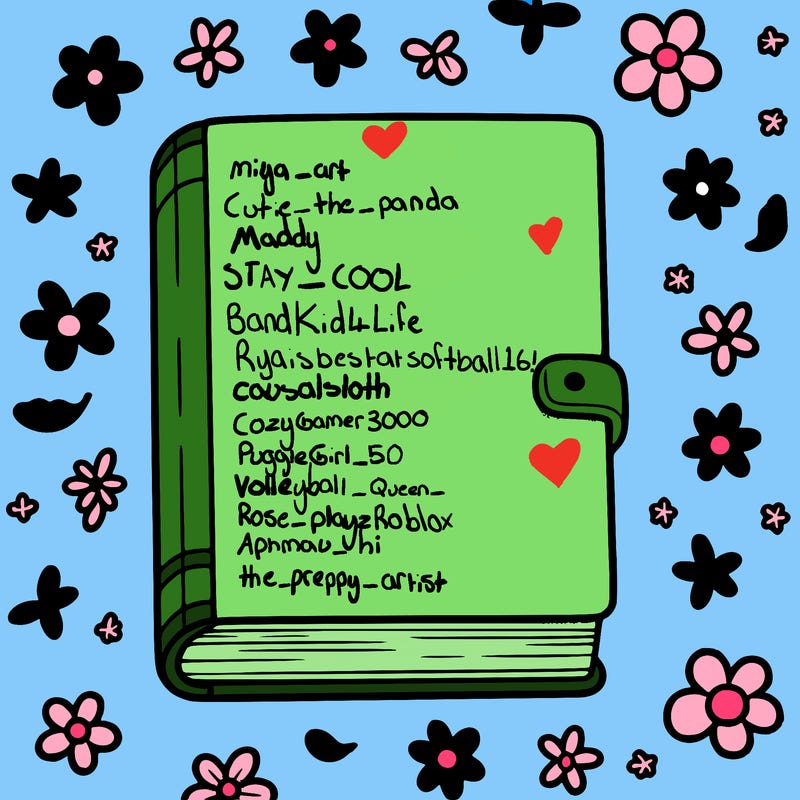 miya_art
Cutie_the_panda
Maddy
STAY_COOL
BandKid4Life
Ryaisbestatsoftball16!
causalsloth
CozyGamer3000
PuggleGirl_50
Volleyball_Queen_
Rose_playzRoblox
Aphmau_hi
the_preppy_artist